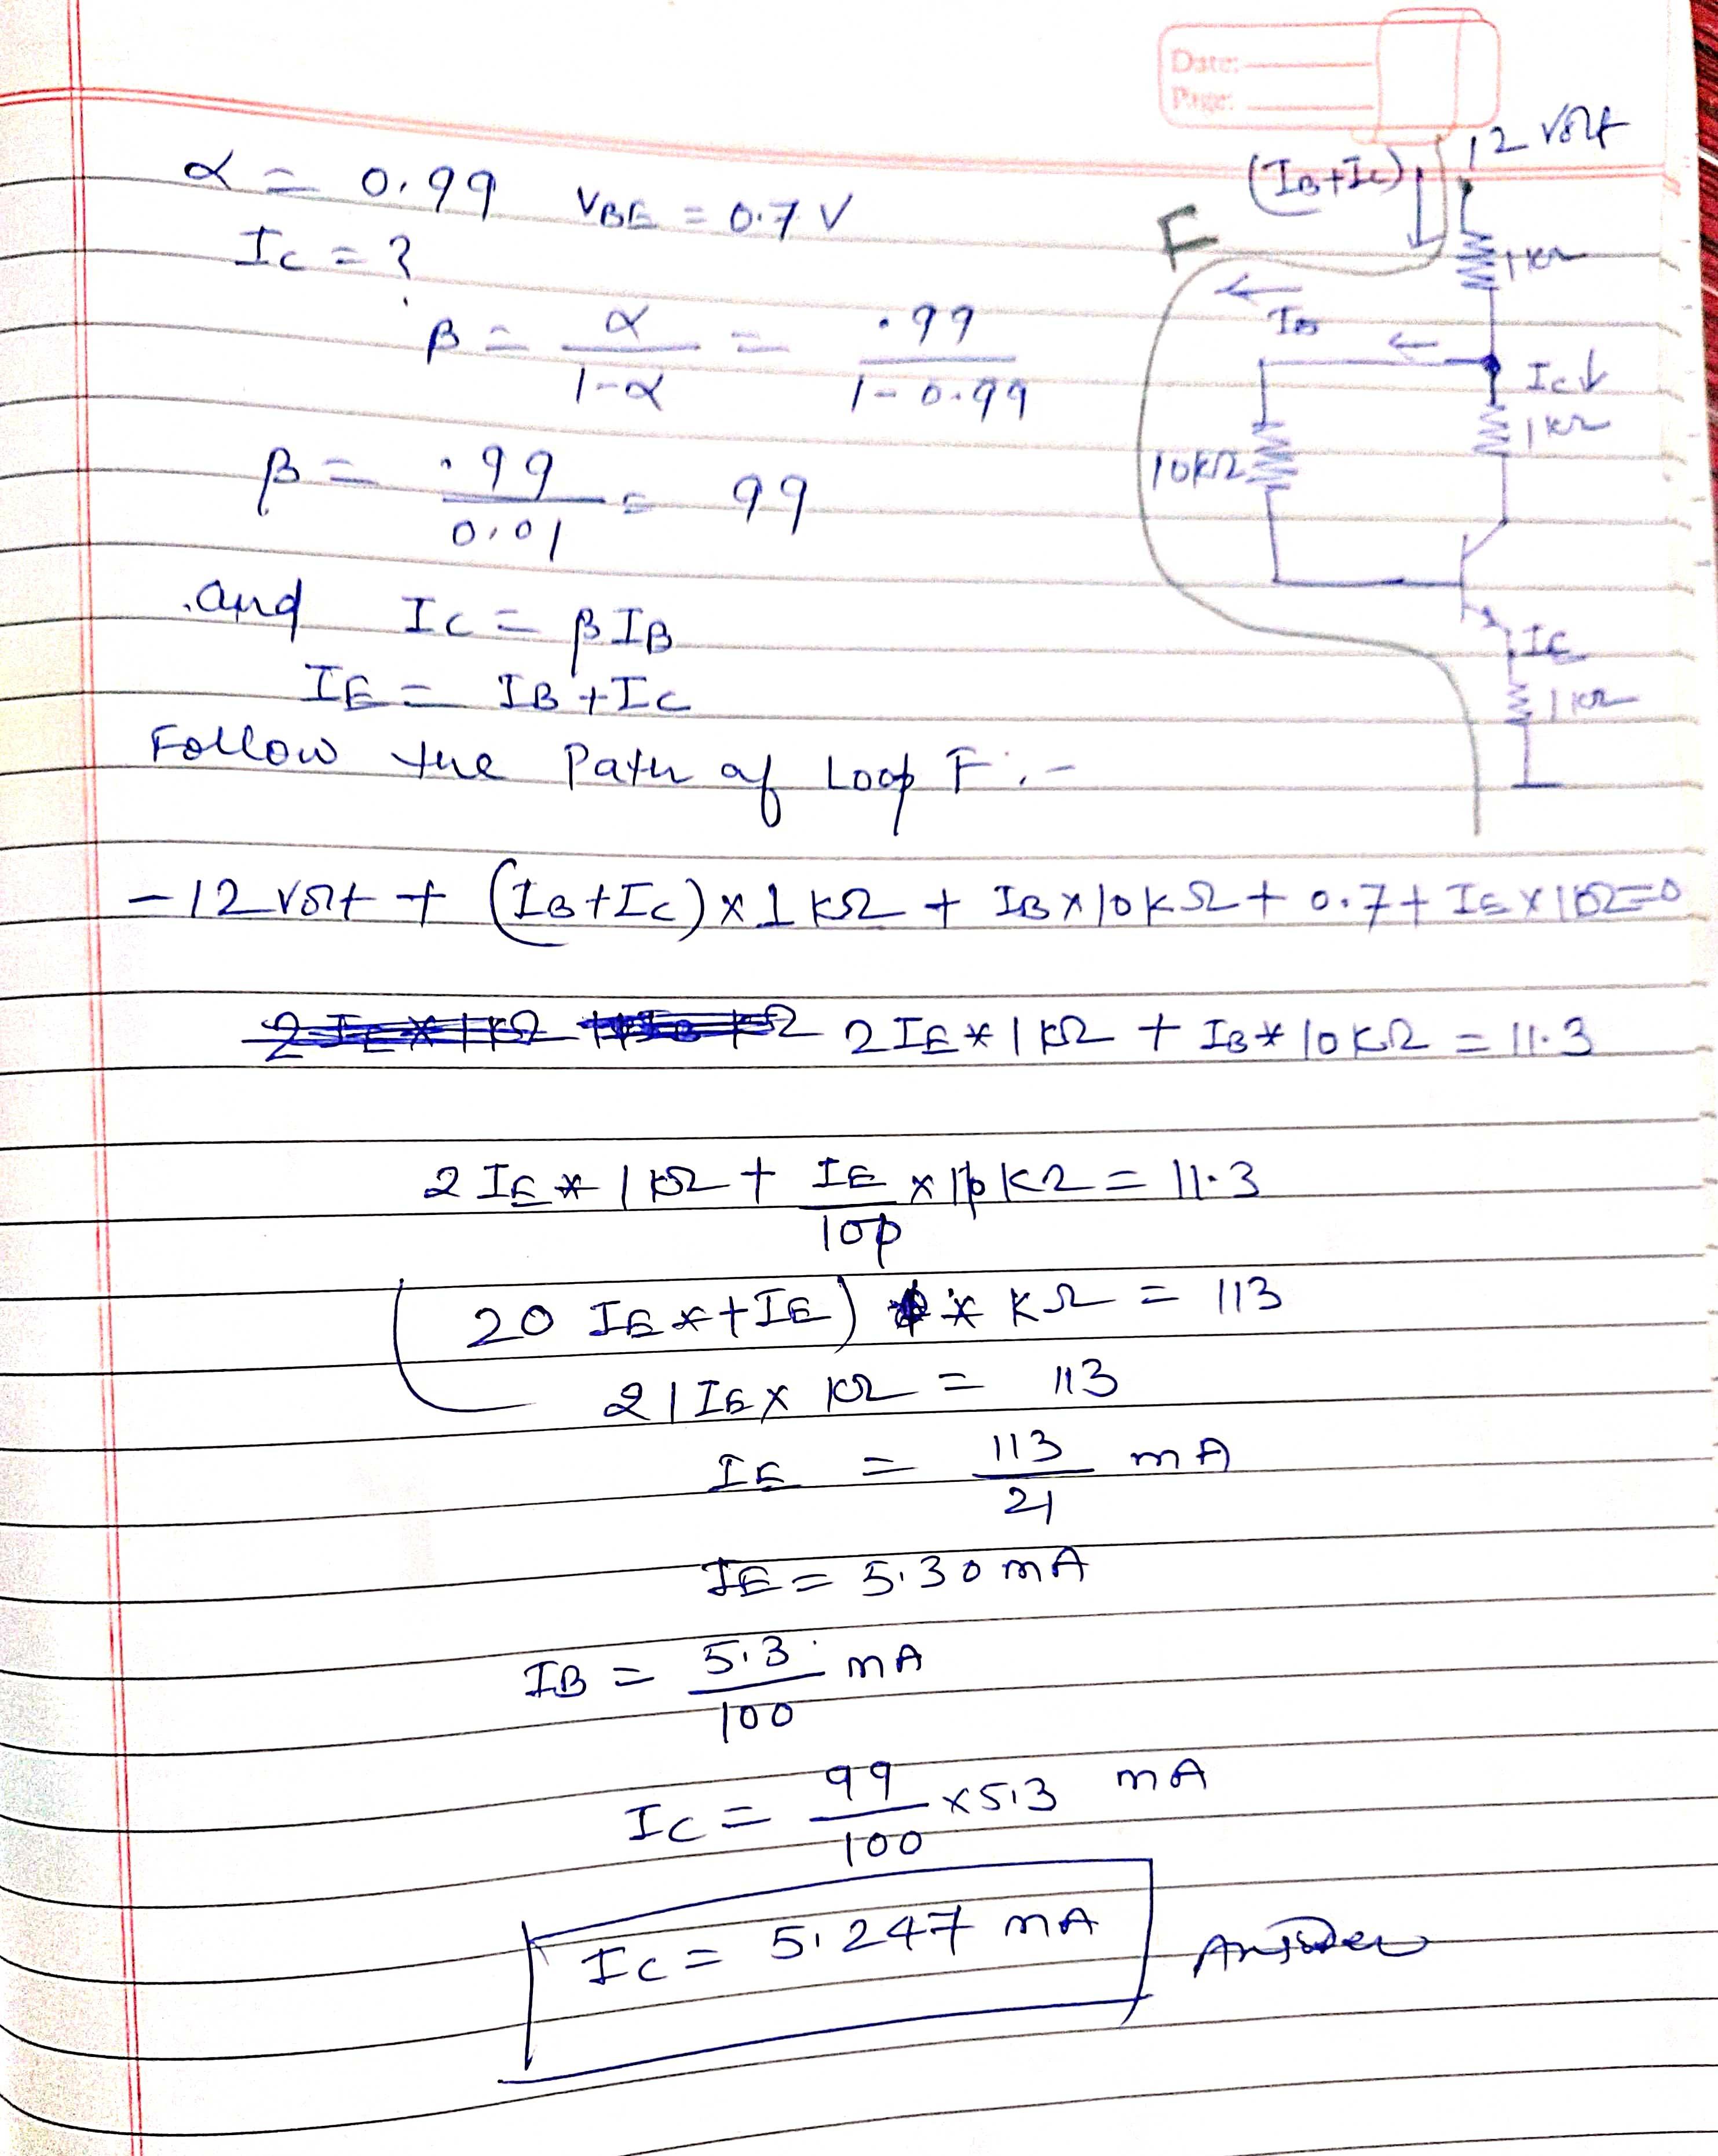 Date:
Page:
α = 0.99 VBE = 0.7 V
IC = ?
β = α / 1-α = .99 / 1-0.99
β = .99 / 0.01 = 99
and IC = βIB
IE = IB + IC
Follow the Path of Loop F :-
(IB+IC)↓ 12 volt
F
1 kΩ
← IB ←
IC↓
1 kΩ
10KΩ
IE
1 kΩ
-12 volt + (IB+IC) × 1 KΩ + IB × 10 KΩ + 0.7 + IE × 1Ω=0
2 IE * 1 KΩ + IB * 10 KΩ = 11.3
2 IE * 1 KΩ + IE / 100 × 10 KΩ = 11.3
(20 IE * + IE) * KΩ = 113
21 IE × KΩ = 113
IE = 113 / 21 mA
IE = 5.30 mA
IB = 5.3 / 100 mA
IC = 99 / 100 × 5.3 mA
IC = 5.247 mA Answer